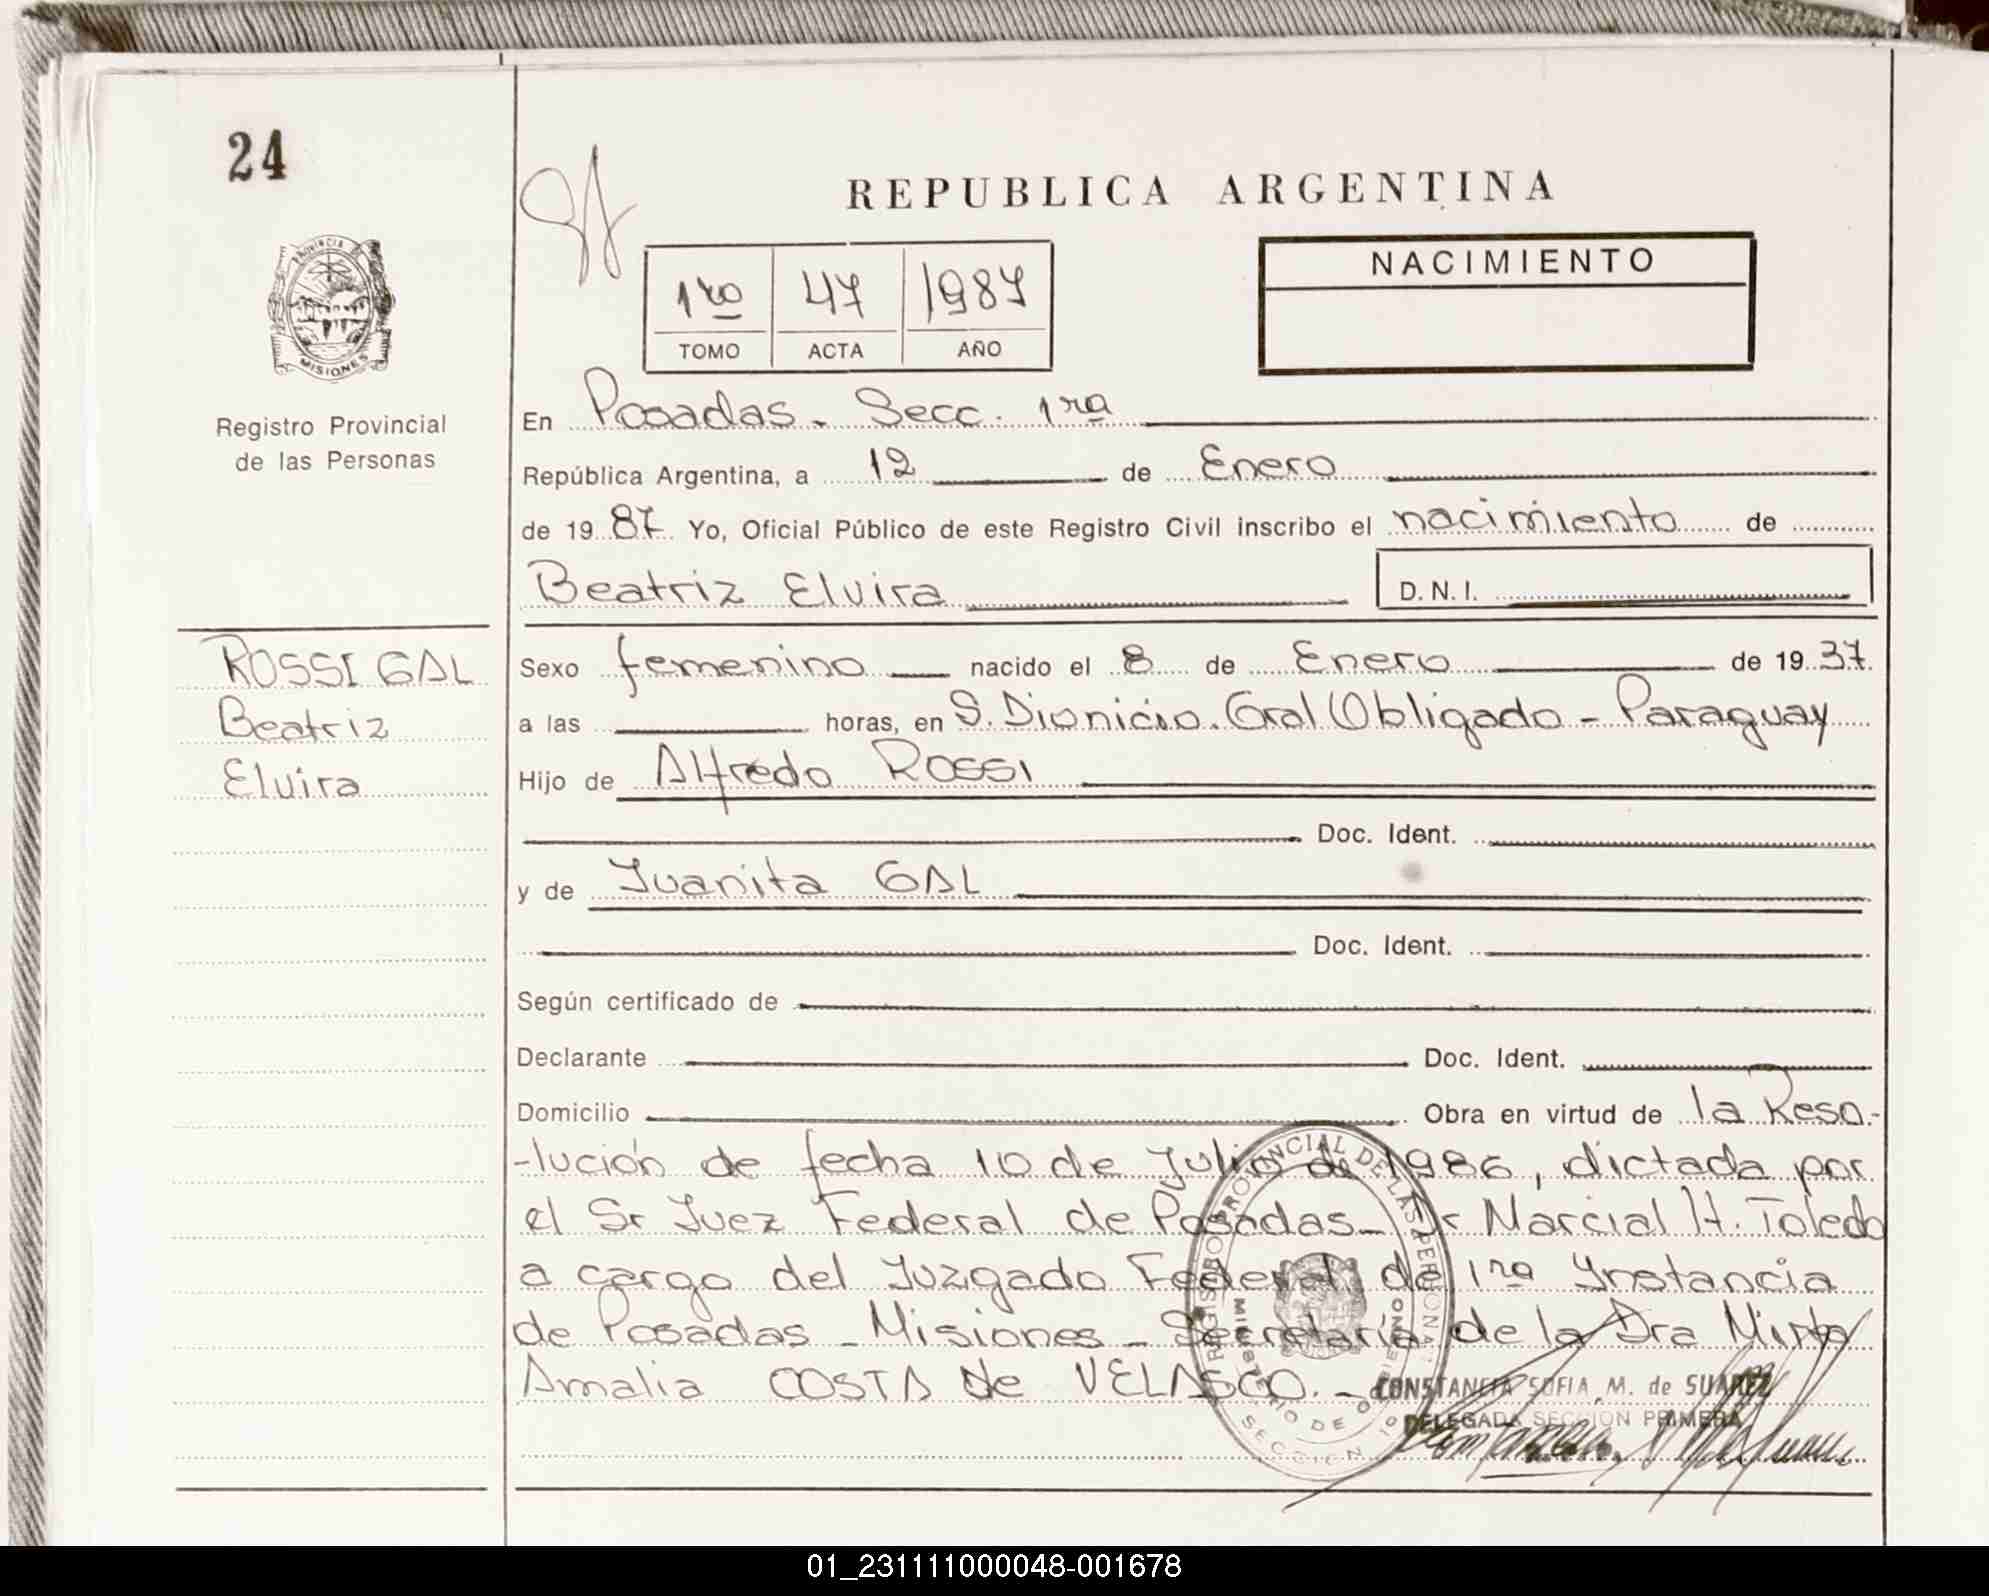 24
REPUBLICA ARGENTINA
PROVINCIA
MISIONES
Registro Provincial
de las Personas
1ro 47 1987
TOMO ACTA AÑO
NACIMIENTO
En Posadas. Secc. 1ra
República Argentina, a 12 de Enero
de 1987 Yo, Oficial Público de este Registro Civil inscribo el nacimiento de
Beatriz Elvira D.N.I.
ROSSI GAL
Beatriz
Elvira
Sexo femenino nacido el 8 de Enero de 1937.
a las horas, en S. Dionicio. Gral Obligado - Paraguay
Hijo de Alfredo ROSSI
Doc. Ident.
y de Juanita GAL
Doc. Ident.
Según certificado de
Declarante Doc. Ident.
Domicilio Obra en virtud de la Reso-
-lución de fecha 10 de Julio de 1986, dictada por
el Sr Juez Federal de Posadas- Dr Marcial H. Toledo
a cargo del Juzgado Federal de 1ra Instancia
de Posadas - Misiones - Secretaría de la Dra Mirta
Amalia COSTA de VELASCO. -
REGISTRO PROVINCIAL DE LAS PERSONAS
MINISTERIO DE GOBIERNO
SECCION 1
CONSTANCIA SOFIA M. de SUAREZ
DELEGADA SECCION PRIMERA
01_231111000048-001678